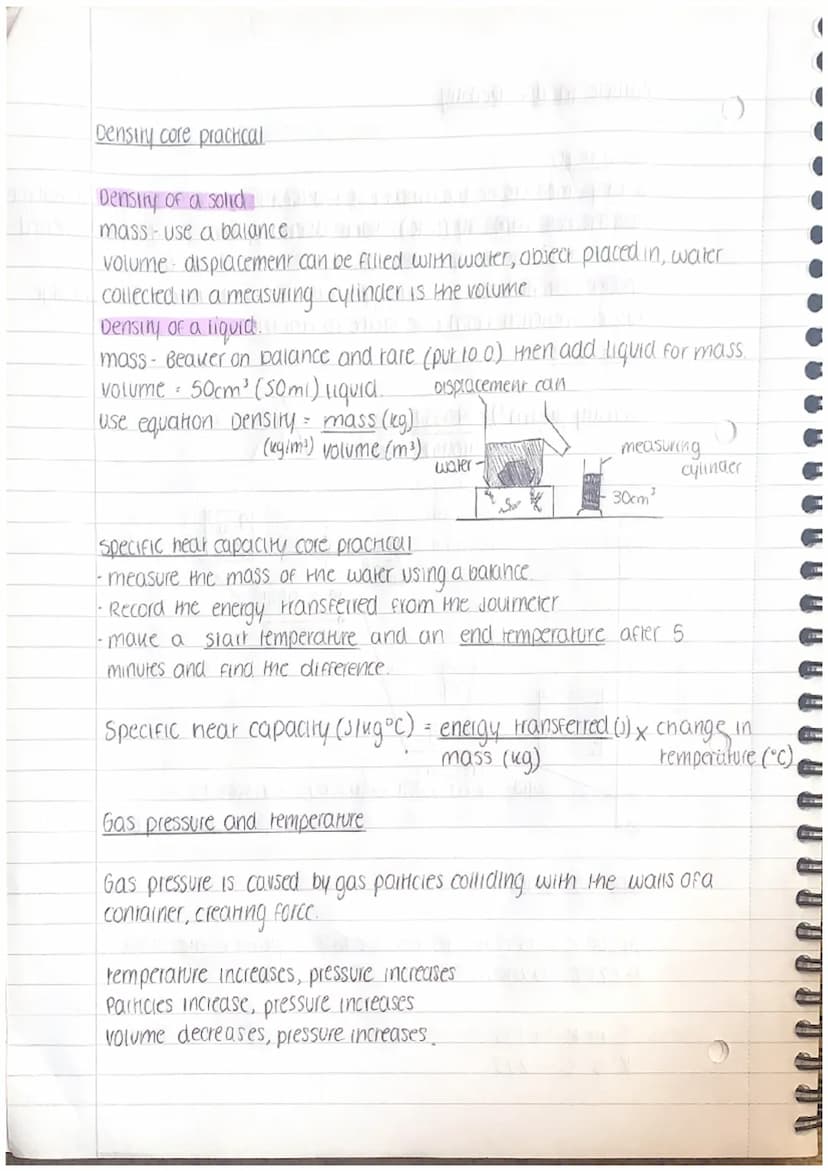 Density core practical
Density of a solid
mass - use a balance
volume - displacement can be filled with water, object placed in, water
collected in a measuring cylinder is the volume
Density of a liquid.
mass - Beaker on balance and tare (put to 0) then add liquid for mass.
volume = 50cm³ (50ml) liquid.
displacement can
use equation Density = mass (kg)
(kg/m³) volume (m³)
water
measuring
cylinder
30cm³
specific heat capacity core practical
· measure the mass of the water using a balance
· Record the energy transferred from the Joulmeter
· make a start temperature and an end temperature after 5
minutes and find the difference.
Specific heat capacity (J/kg°C) = energy transferred (J) x change in
mass (kg) temperature (°C)
Gas pressure and temperature
Gas pressure is caused by gas particles colliding with the walls of a
container, creating force.
temperature increases, pressure increases
Particles increase, pressure increases
volume decreases, pressure increases.